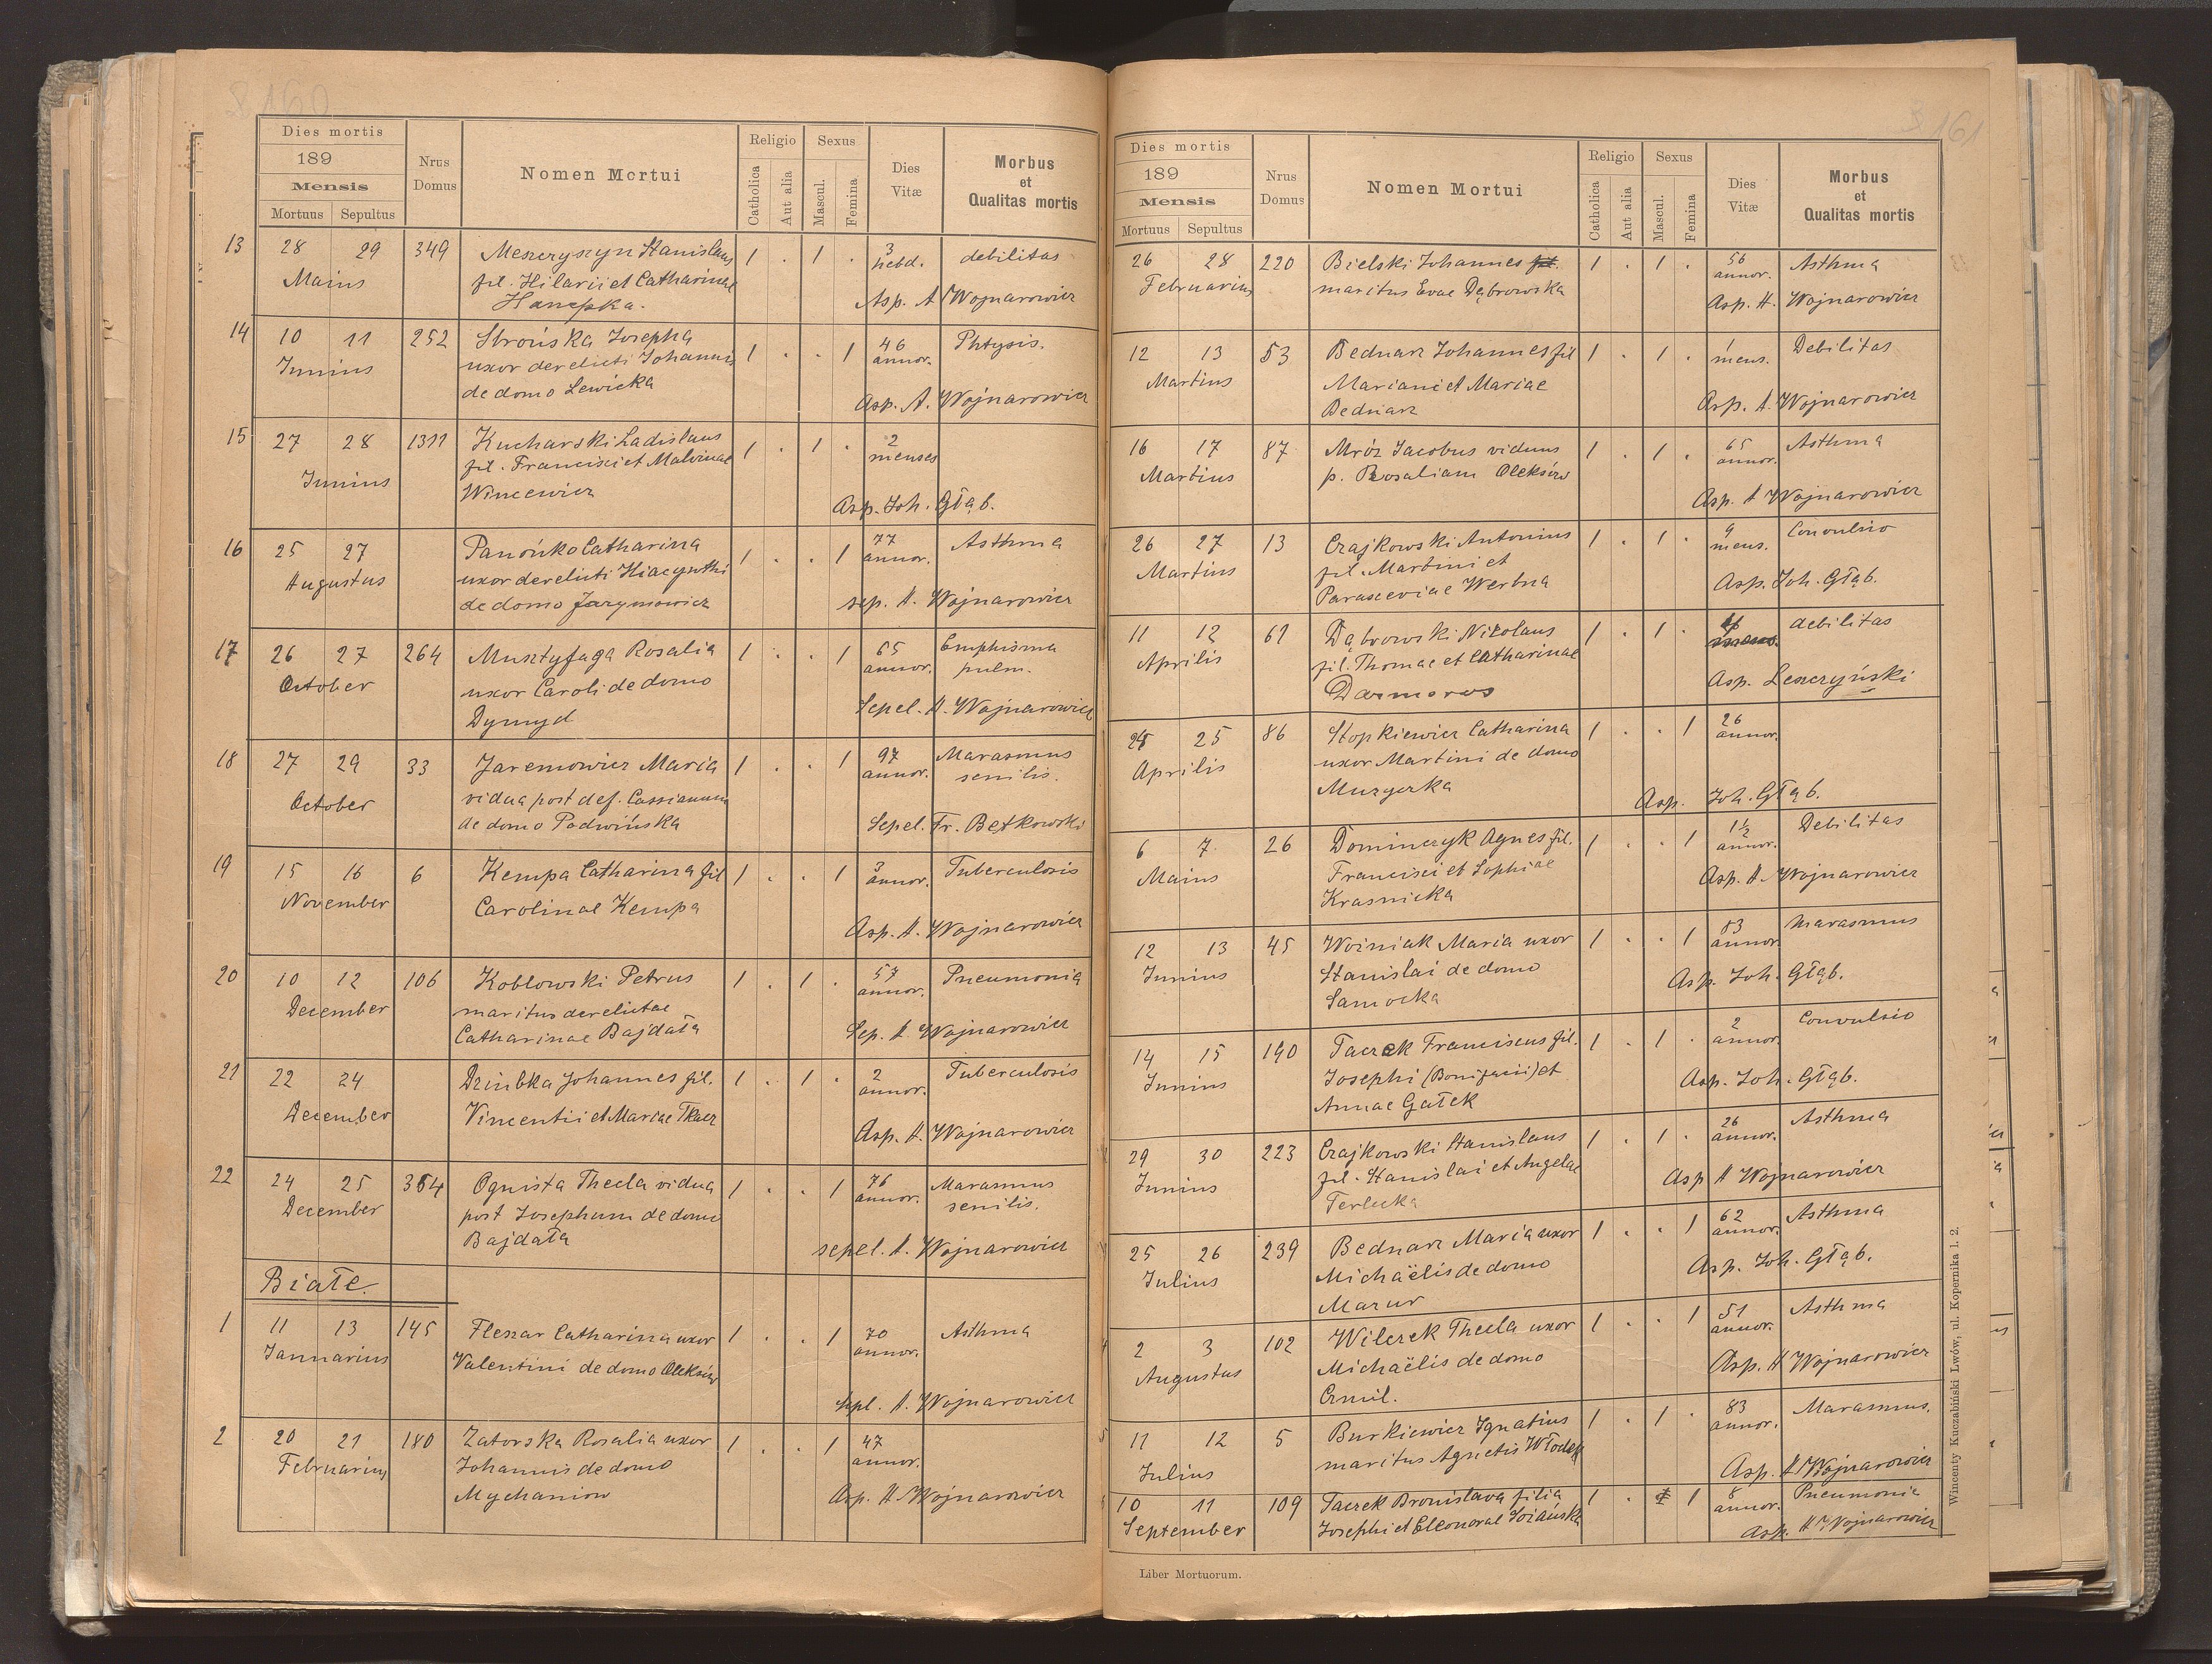 160
Dies mortis
189
Mensis
Mortuus Sepultus
Nrus Domus
Nomen Mortui
Religio
Catholica Aut alia
Sexus
Mascul. Femina
Dies Vitæ
Morbus et Qualitas mortis
13 28 29 349 Meszeryszyn Stanislaus 1 . 1 . 3 hebd. debilitas
Maius fil. Hilarii et Catharinae
Hanepka. Asp. A Wojnarowicz
14 10 11 252 Strońska Josepha 1 . . 1 46 annor. Phtysis.
Junius uxor derelicti Johannis
de domo Lewicka Asp. A. Wojnarowicz
15 27 28 1311 Kucharski Ladislaus 1 . 1 . 2 menses
Junius fil. Francisci et Malvinae
Wincewicz Asp. Joh. Głąb.
16 25 27 Panońko Catharina 1 . . 1 77 annor. Asthma
Augustus uxor derelicti Hiacynthi
de domo Jarymowicz sep. A. Wojnarowicz
17 26 27 264 Musztyfaga Rosalia 1 . . 1 65 annor. Emphisma pulm.
October uxor Caroli de domo
Dymyd Sepel. A. Wojnarowicz
18 27 29 33 Jaremowicz Maria 1 . . 1 97 annor. Marasmus senilis.
October vidua post def. Cassianum
de domo Podwińska Sepel. Fr. Bętkowski
19 15 16 6 Kempa Catharina fil 1 . . 1 3 annor. Tuberculosis
November Carolinae Kempa Asp. A. Wojnarowicz
20 10 12 106 Koblowski Petrus 1 . 1 . 57 annor. Pneumonia
December maritus derelictae
Catharinae Bajdała Sep. A. Wojnarowicz
21 22 24 Dziubka Johannes fil. 1 . 1 . 2 annor. Tuberculosis
December Vincentii et Mariae Tkacz Asp. A. Wojnarowicz
22 24 25 364 Ognista Thecla vidua 1 . . 1 76 annor. Marasmus senilis.
December post Josephum de domo
Bajdała sepel. A. Wojnarowicz
Białe.
1 11 13 145 Fleszar Catharina uxor 1 . . 1 70 annor. Asthma
Januarius Valentini de domo Oleksiów
Sepl. A. Wojnarowicz
2 20 21 180 Zatorska Rosalia uxor 1 . . 1 47 annor.
Februarius Johannis de domo
Mychaniow Asp. A Wojnarowicz
161
Dies mortis
189
Mensis
Mortuus Sepultus
Nrus Domus
Nomen Mortui
Religio
Catholica Aut alia
Sexus
Mascul. Femina
Dies Vitæ
Morbus et Qualitas mortis
26 28 220 Bielski Johannes fil. 1 . 1 . 56 annor. Asthma
Februarius maritus Evae Dąbrowska Asp. A. Wojnarowicz
12 13 53 Bednarz Johannes fil 1 . 1 . 1 mens. Debilitas
Martius Mariani et Mariae
Bednarz Asp. A. Wojnarowicz
16 17 87 Mróz Jacobus viduus 1 . 1 . 65 annor. Asthma
Martius p. Rosaliam Oleksiów
Asp. A Wojnarowicz
26 27 13 Czajkowski Antonius 1 . 1 . 9 mens. Convulsio
Martius fil. Martini et
Parasceviae Werbna Asp. Joh. Głąb.
11 12 61 Dąbrowski Nikolaus 1 . 1 . debilitas
Aprilis fil. Thomae et Catharinae
Darmoros Asp. Leszczyński
24 25 86 Stopkiewicz Catharina 1 . . 1 26 annor.
Aprilis uxor Martini de domo
Muzyczka Asp. Joh. Głąb.
6 7 26 Dominczyk Agnes fil. 1 . . 1 1½ annor. Debilitas
Maius Francisci et Sophiae
Krasnicka Asp. A. Wojnarowicz
12 13 45 Wozniak Maria uxor 1 . . 1 83 annor. Marasmus
Junius Stanislai de domo
Samocka Asp. Joh. Głąb.
14 15 190 Taczek Franciscus fil. 1 . 1 . 2 annor. Convulsio
Junius Josephi (Bonifacii) et
Annae Gałek Asp. Joh. Głąb.
29 30 223 Czajkowski Stanislaus 1 . 1 . 26 annor. Asthma
Junius fil. Stanislai et Angelae
Terlecka Asp A Wojnarowicz
25 26 239 Bednarz Maria uxor 1 . . 1 62 annor. Asthma
Julius Michaëlis de domo
Mazur Asp. Joh. Głąb.
2 3 102 Wilczek Thecla uxor 1 . . 1 51 annor. Asthma
Augustus Michaëlis de domo
Czmil. Asp. A Wojnarowicz
11 12 5 Burkiewicz Ignatius 1 . 1 . 83 annor. Marasmus.
Julius maritus Agnetis Włodek
Asp. A Wojnarowicz
10 11 109 Taczek Bronislava filia 1 . 1 8 annor. Pneumonia
September Josephi et Eleonorae Sozańska Asp. A Wojnarowicz
Liber Mortuorum.
Wincenty Kuczabiński Lwów, ul. Kopernika l. 2.